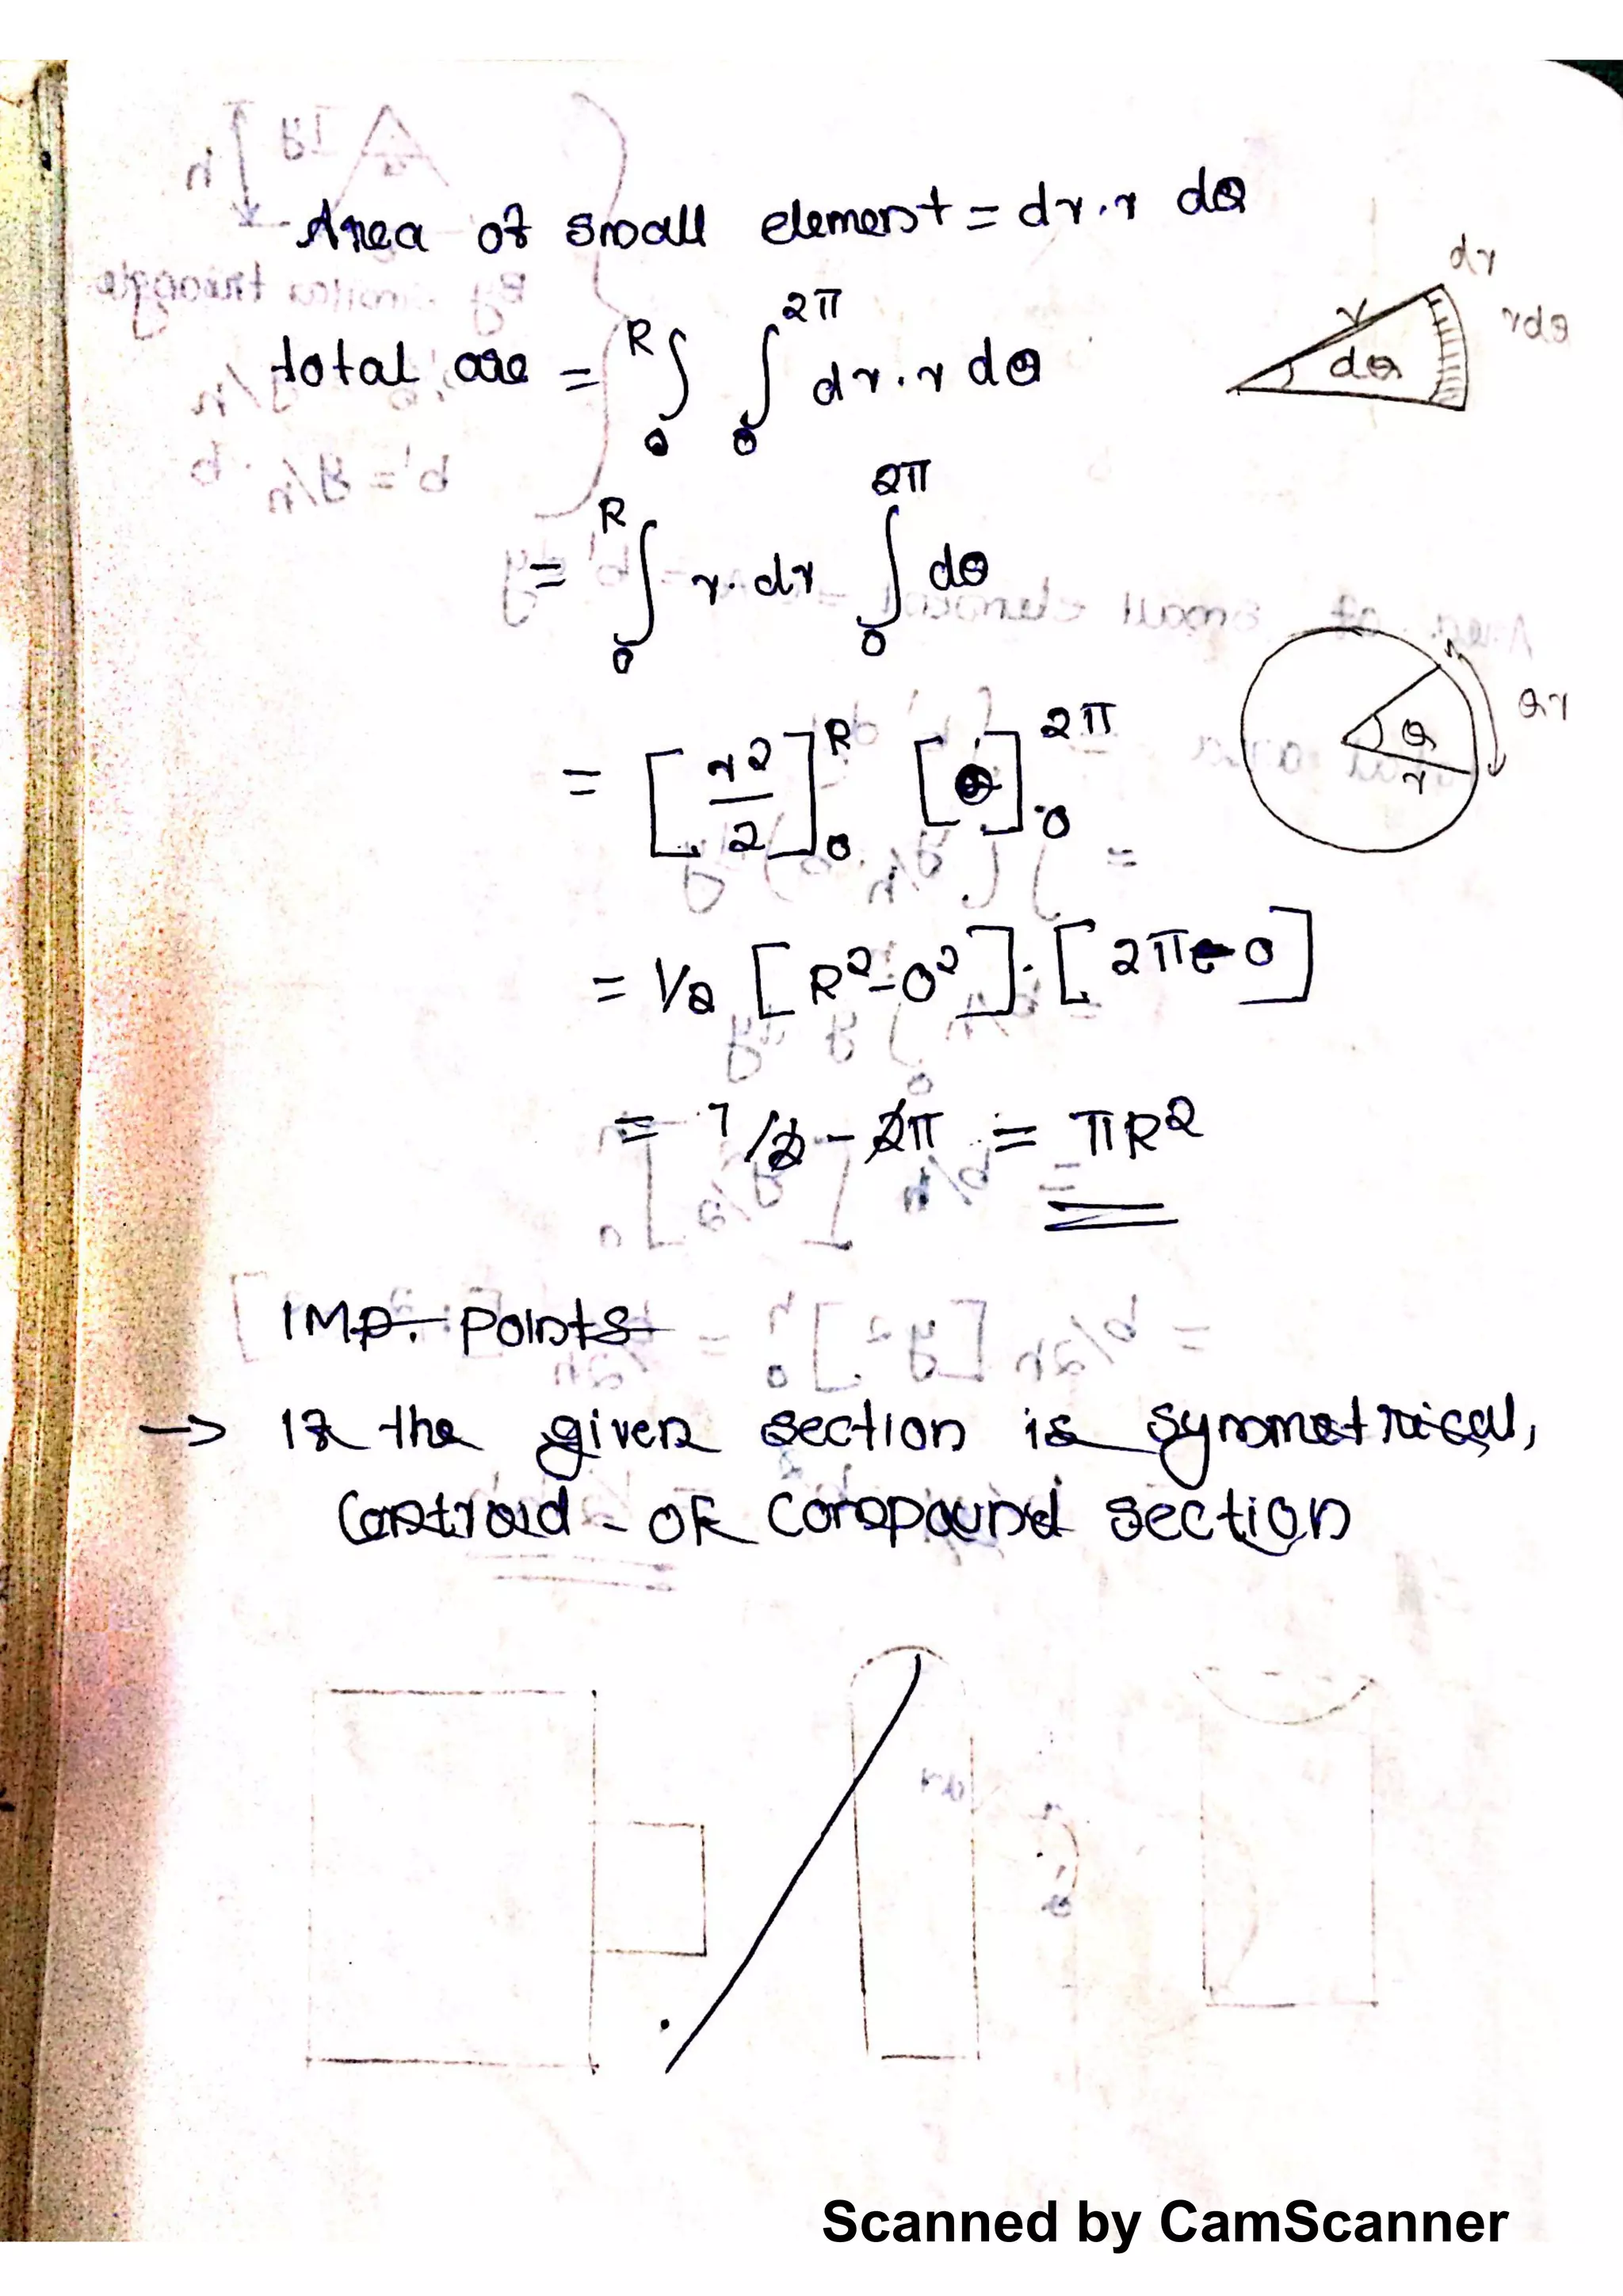 Area of small element = dr.r dθ
dr
r
dθ
rdθ
total are = ∫₀ᴿ ∫₀^2π dr.r dθ
= ∫₀ᴿ r.dr ∫₀^2π dθ
θr
θ
r
= [r²/2]₀ᴿ [θ]₀^2π
= 1/2 [R²-0²].[2π-0]
= 1/2 - 2π = πR²
IMP. Points
→ If the given section is symmetrical,
Centroid of Compound section
Scanned by CamScanner